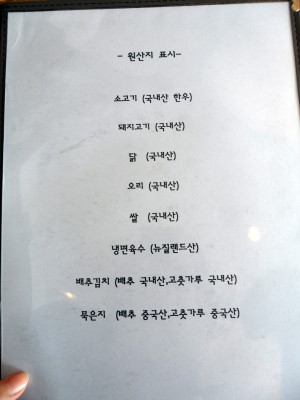 - 원산지 표시-
소고기 (국내산 한우)
돼지고기 (국내산)
닭 (국내산)
오리 (국내산)
쌀 (국내산)
냉면육수 (뉴질랜드산)
배추김치 (배추 국내산,고춧가루 국내산)
묵은지 (배추 중국산,고춧가루 중국산)